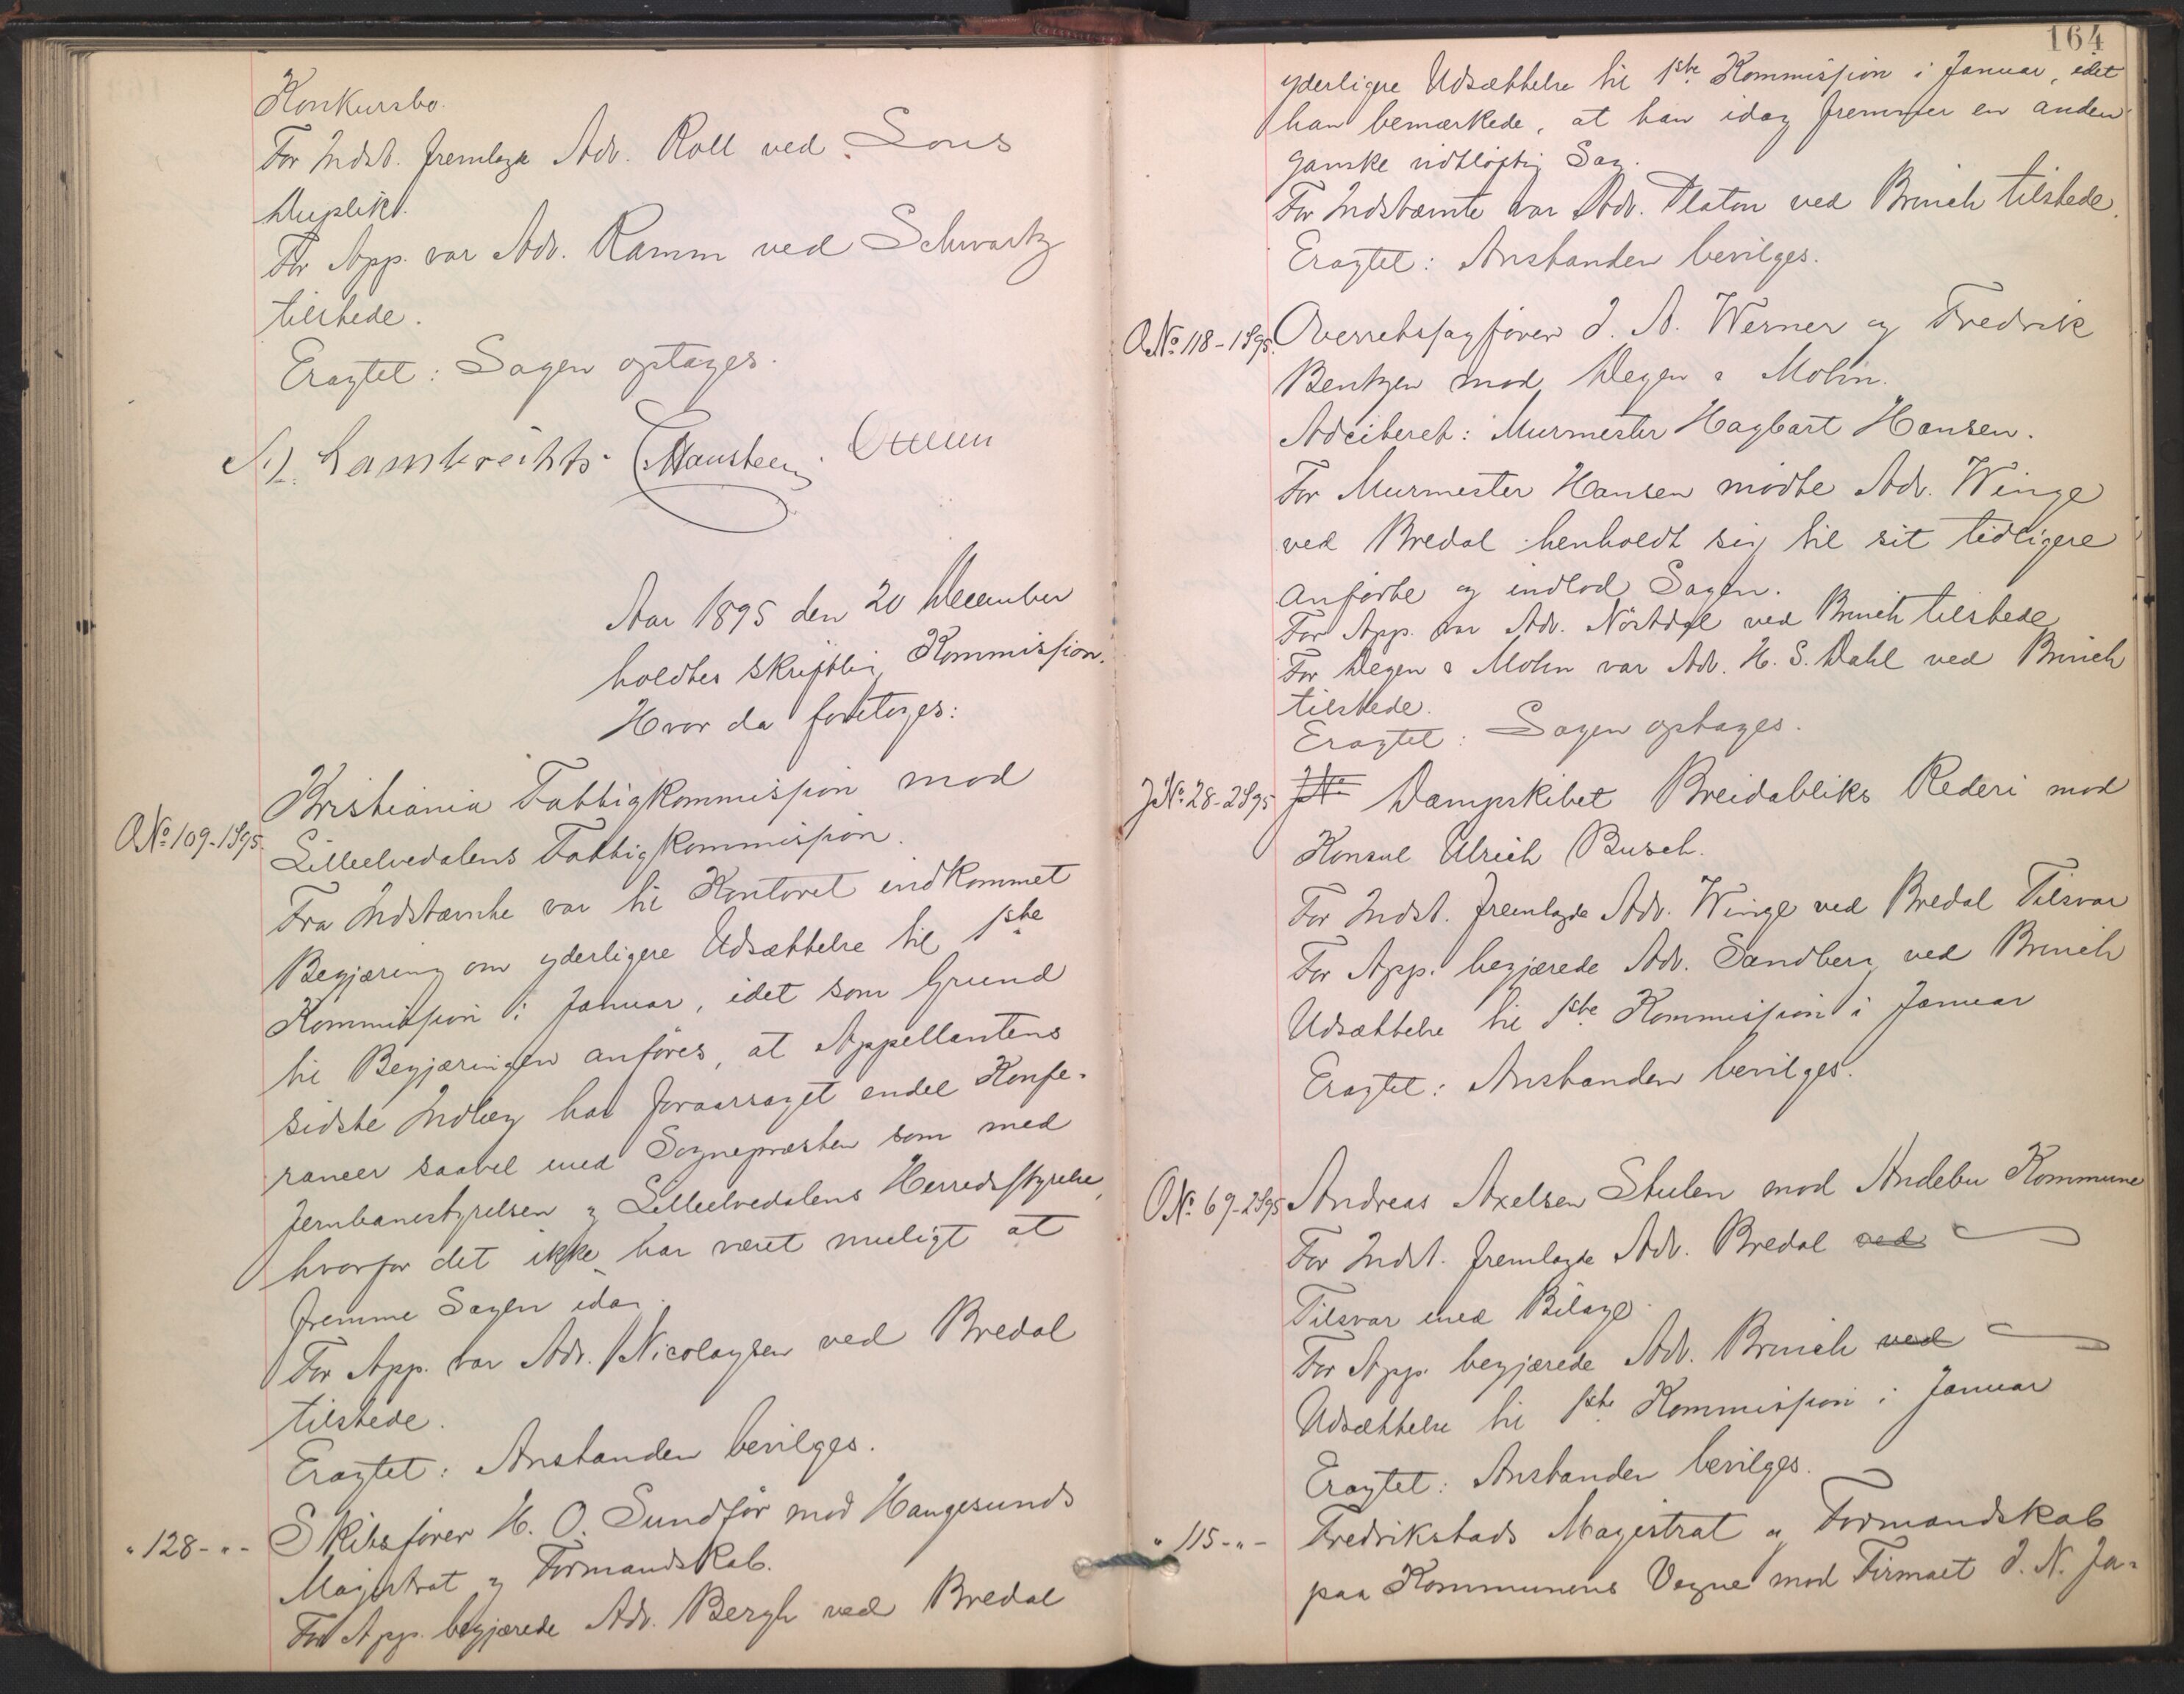 Konkursbo.
For Indst. fremlagde Adv. Roll ved Lous
Duplik.
For App. var Adv. Ramm ved Schwartz
tilstede.
Eragtet: Sagen optages.
Lambrechts
Aar 1895 den 20 December
holdtes skriftlig Kommission.
Hvor da foretoges:
Kristiania Fattigkommission mod
O№ 109-1S95.
Lilleelvedalens Fattigkommission.
Fra Indstævnte var til Kontoret indkommet
Begjæring om yderligere Udsættelse til 1ste
Kommission i Januar, idet som Grund
til Begjæringen anføres, at Appellantens
sidste Indlæg har foraarsaget endel Konfe-
rancer saavel med Sognepræsten som med
Jernbanestyrelsen og Lilleelvedalens Herredsstyrelse,
hvorfor det ikke har været muligt at
fremme Sagen idag.
For App. var Adv. Nicolaysen ved Bredal
tilstede.
Eragtet: Anstanden bevilges.
"128-"- Skibsfører H. O. Sundfør mod Haugesunds
Magistrat og Formandskab.
For App. begjærede Adv. Bergh ved Bredal
164
yderligere Udsættelse til 1ste Kommission i Januar, idet
han bemærkede, at han idag fremmer en anden
ganske vidtløftig Sag.
For Indstævnte var Adv. Platou ved Brinch tilstede.
Eragtet: Anstanden bevilges.
O№ 118-1S95. Overretssagfører J. A. Werner og Fredrik
Bentzen mod Degen & Mohn.
Adciteret: Murmester Hagbart Hansen.
For Murmester Hansen mødte Adv. Winge
ved Bredal henholdt sig til sit tidligere
anførte og indlod Sagen.
For App. var Adv. Nørdal ved Brinch tilstede
For Degen & Mohn var Adv. H. S. Dahl ved Brinch
tilstede.
Eragtet: Sagen optages.
J№ 28-2S95 Dampskibet Breidabliks Rederi mod
Konsul Ulrich Busch.
For Indst. fremlagde Adv. Winge ved Bredal Tilsvar
For App. begjærede Adv. Sandberg ved Brinch
Udsættelse til 1ste Kommission i Januar
Eragtet: Anstanden bevilges.
O№ 69-2S95 Andreas Axelsen Stulen mod Andebu Kommune
For Indst. fremlagde Adv. Bredal ved
Tilsvar med Bilage.
For App. begjærede Adv. Brinch ved
Udsættelse til 1ste Kommission i Januar
Eragtet: Anstanden bevilges.
"115-"- Fredrikstads Magistrat og Formandskab
paa Kommunens Vegne mod Firmaet J. N. Ja-